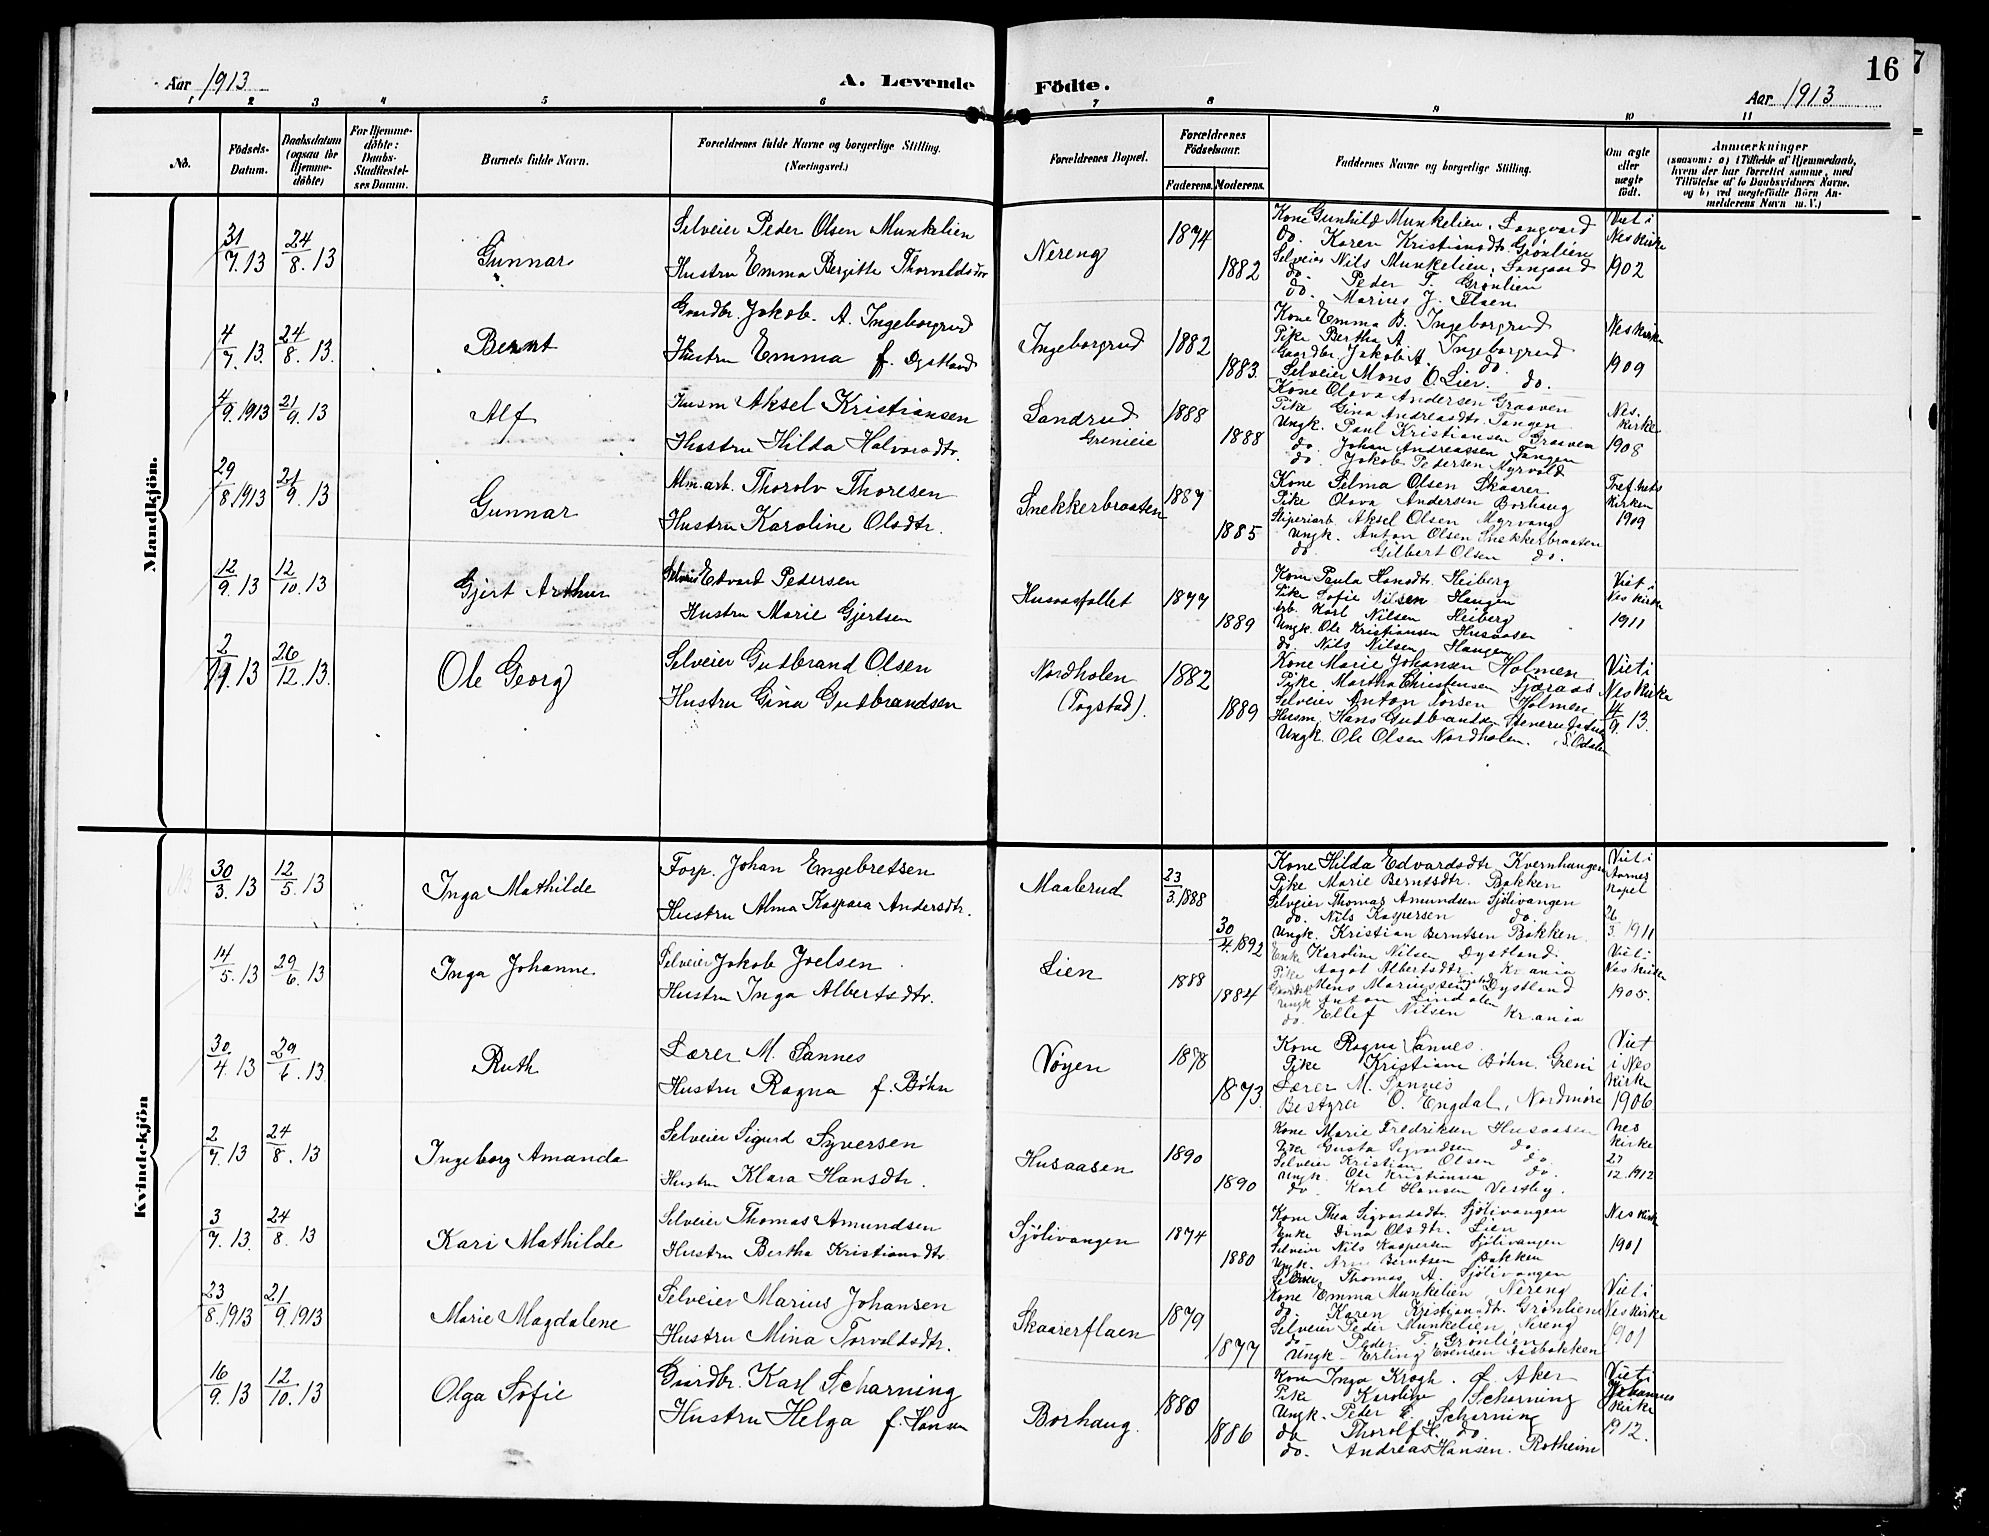 16
Aar 1913
A. Levende Födte.
Aar 1913
1 2 3 4 5 6 7 8 9 10 11
No.
Födsels-Datum.
Daabsdatum (ogsaa for Hjemme-döbte)
For Hjemme-döbte: Daabs-Stadfæstel-ses Datum.
Barnets fulde Navn.
Forældrenes fulde Navne og borgerlige Stilling. (Næringsvei.)
Forældrenes Bopæl.
Forældrenes Födselsaar.
Faderens. Moderens.
Faddernes Navne og borgerlige Stilling.
Om ægte eller uægte födt.
Anmærkninger
(saasom: a) i Tilfælde af Hjemmedaab, hvem der har forrettet samme, med Tilföielse af to Daabsvidners Navne, og b) ved uægtefödte Börn An-melderens Navn m. V.)
Mandkjön.
31/7.13 24/8.13 Gunnar
Selveier Peder Olsen Munkelien
Hustru Emma Bergitte Thorvaldsdtr
Nereng 1874 1882
Kone Gunhild Munkelien, Langaard
do. Karen Kristiansdtr. Grønlien
Selveier Nils Munkelien, Langaard
do. Peder T. Grønlien
do. Marius J. Flaen
Viet i
Nes kirke
1902
4/7.13. 24/8.13. Bernt
Gaardbr. Jakob A. Ingeborgrud
Hustru Emma f. Dystland
Ingeborgrud 1882 1883.
Kone Emma B. Ingeborgrud
Pike Bertha A. Ingeborgrud
Gaardbr. Jakob A. do.
Selveier Mons O. Lier. do.
Nes kirke
1909
4/9.1913 21/9.13 Alf
Husm Aksel Kristiansen
Hustru Hilda Halvorsdtr.
Sandrud
Grenieie
1888 1888
Kone Olava Andersen Graaven
Pike Gina Andreasdtr. Tangen
Ungk. Paul Kristiansen Graaven
do. Johan Andreassen Tangen
do. Jakob Pedersen Myrvold
Nes.
kirke
1908
29/8 1913 21/9.13 Gunnar
Alm.arb. Thorolv Thoresen
Hustru Karoline Olsdtr.
Snekkerbraaten 1887 1885
Kone Selma Olsen Skaarer
Pike Olava Andersen Borhaug
Aksel Olsen Myrvang
Ungk. Anton Olsen Snekkerbraaten
do Gilbert Olsen do.
kirken
1909
12/9.13 12/10.13 Gjert Arthur
Selveier Edvard Pedersen
Hustru Marie Gjertsen
Husaasfallet 1877 1889
Kone Paula Hansdtr. Heiberg
Pike Sofie Nilsen Haugen
Arb. Karl Nilsen Heiberg
Ungk. Ole Kristiansen Husaasen
do. Nils Nilsen Haugen
Viet i
Nes kirke
1911
2/11.13 26/12.13. Ole Georg
Selveier Gudbrand Olsen
Hustru Gina Gudbrandsen
Nordholen
(Togstad).
1882 1889
Kone Marie Johansen Holmen
Pike Martha Christensen Sjøraas
Selveier Anton Torsen Holmen
Husm. Hans Gudbrandsen
Ungk. Ole Olsen Nordholen. S. Odalen
Viet i
Nes kirke
14/9.13.
Kvindekjön
30/3.13 12/5.13 Inga Mathilde
Forp. Johan Engebretsen
Hustru Alma Kaspara Andersdtr.
Maalerud 23/3.1888 30/4.1892
Kone Hilda Edvardsdtr Kvernhaugen
Pike Marie Berntsdtr. Bakken
Selveier Thomas Amundsen Sjölivangen
do. Nils Kaspersen do.
Ungk. Kristian Berntsen Bakken
Viet i
Aarnes
Kapel
26/3 1911
14/5.13 29/6.13 Inga Johanne
Selveier Jakob Joelsen
Hustru Inga Albertsdtr.
Lien 1888 1884
Enke Karoline Nilsen Dystland
Pike Aagot Albertsdtr. Kr.ania
Mons Mariussen Dystland
Ungk Anton Lindalen
do. Ellef Nilsen Kr.ania
Viet i
Nes kirke
1905.
30/4.13 29/6.13 Ruth
Lærer M. Sannes
Hustru Ragna f. Bøhn
Vøyen 1878 1873.
Kone Ragna Sannes.
Pike Kristiane Bøhn. Greni
Lærer M. Sannes
Bestyrer O. Engdal, Nordmøre
Viet
i Nes
kirke
1906
2/7.13 24/8.13 Ingeborg Amanda
Selveier Sigurd Syversen
Hustru Klara Hansdtr.
Husaasen 1890 1890
Kone Marie Fredriksen Husaasen
Pike Gusta Sigvardsen do
Selveier Kristian Olsen do
Ungk. Ole Kristiansen do.
do. Karl Hansen Vestby.
Nes
kirke
27/12.1912
3/7.13. 24/8.13 Kari Mathilde
Selveier Thomas Amundsen
Hustru Bertha Kristiansdtr.
Sjölivangen 1874 1880
Kone Thea Sigvardsdtr. Sjölivangen
Enke Dina Olsdtr. Lien
Selveier Nils Kaspersen Sjölivangen
Ungk. Arne Berntsen Bakken
Selveier Thomas A. Sjölivangen
Nes kirke
1901
23/8.1913 21/9.1913 Marie Magdalene
Selveier Marius Johansen
Hustru Mina Torvaldsdtr.
Skaarerflaen 1879 1877
Kone Emma Munkelien, Nereng
do. Karen Kristiansdtr. Grønlien
Selveier Peder Munkelien, Nereng
do Peder T. Grønlien
Ungk. Erling Evensen Aisbakken
Viet i
Nes kirke
1901
16/9.13 12/10.13 Olga Sofie
Gaardbr. Karl Scharning
Hustru Helga f. Hansen
Borhaug. 1880 1886
Kone Inga Krogh. Ø. Aker
Pike Karoline Scharning
Ungk. Peder E. Scharning
do Thorolf H. do
do. Andreas Hansen. Rotheim
Viet i
Johannes
kirke
1912.